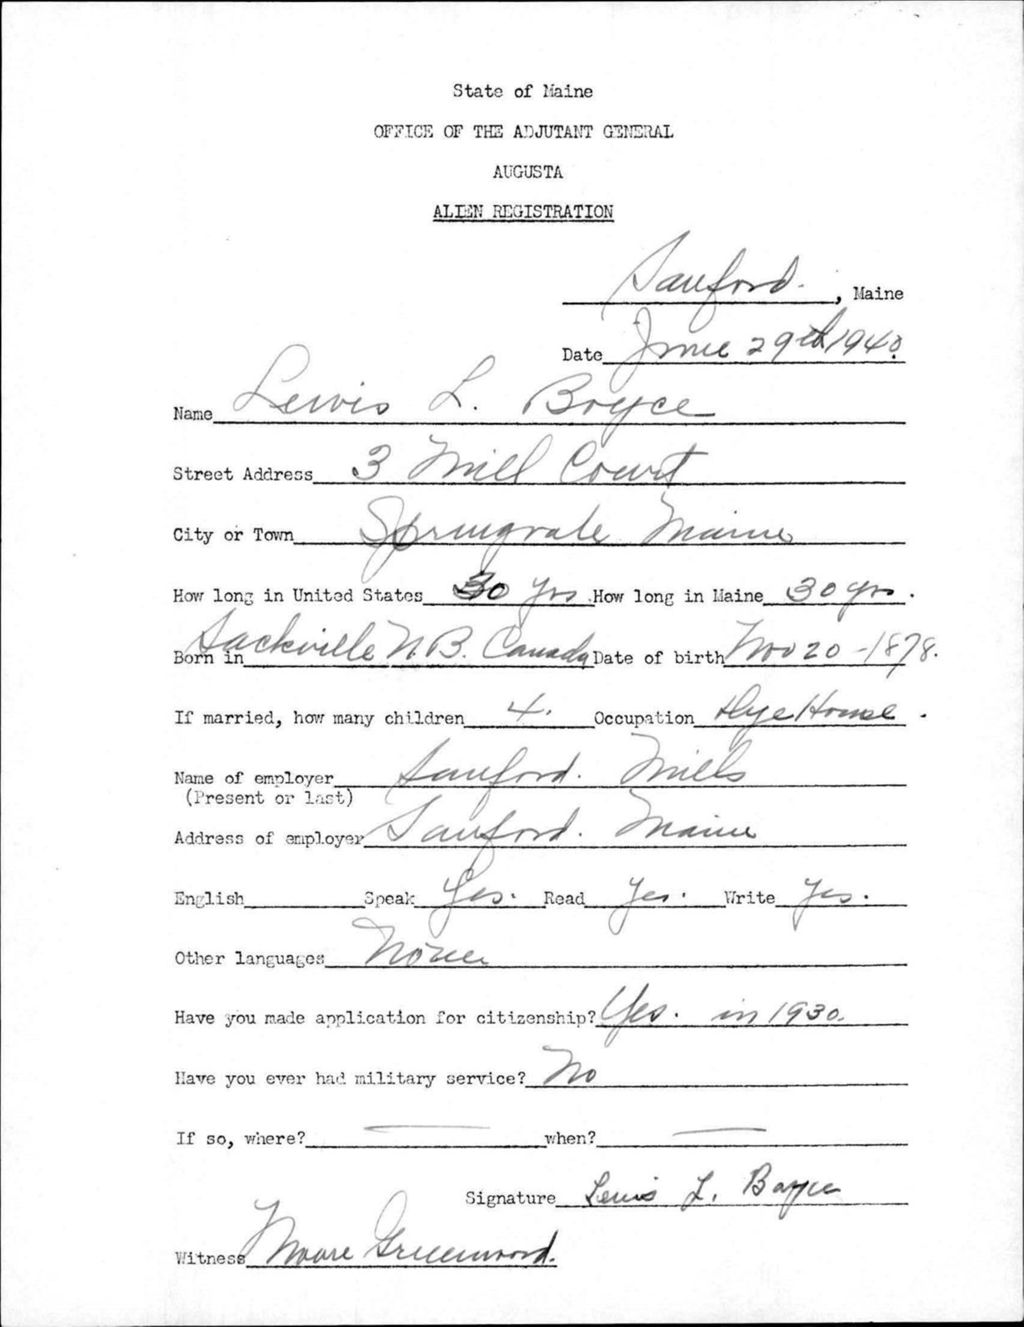 State of Maine
OFFICE OF THE ADJUTANT GENERAL
AUGUSTA
ALIEN REGISTRATION
Sanford. , Maine
Date June 29th 1940
Name Lewis L. Boyce
Street Address 3 Mill Court
City or Town Springvale Maine
How long in United States 30 yrs How long in Maine 30 yrs.
Born in Sackville N.B. Canada Date of birth Nov 20 - 1878.
If married, how many children 4. Occupation Dye House.
Name of employer Sanford. Mills
(Present or last)
Address of employer Sanford. Maine
English Speak Yes. Read Yes. Write Yes.
Other languages None
Have you made application for citizenship? Yes. in 1930.
Have you ever had military service? No
If so, where? — when? —
Signature Lewis L. Boyce
Witness Moore Greenwood.